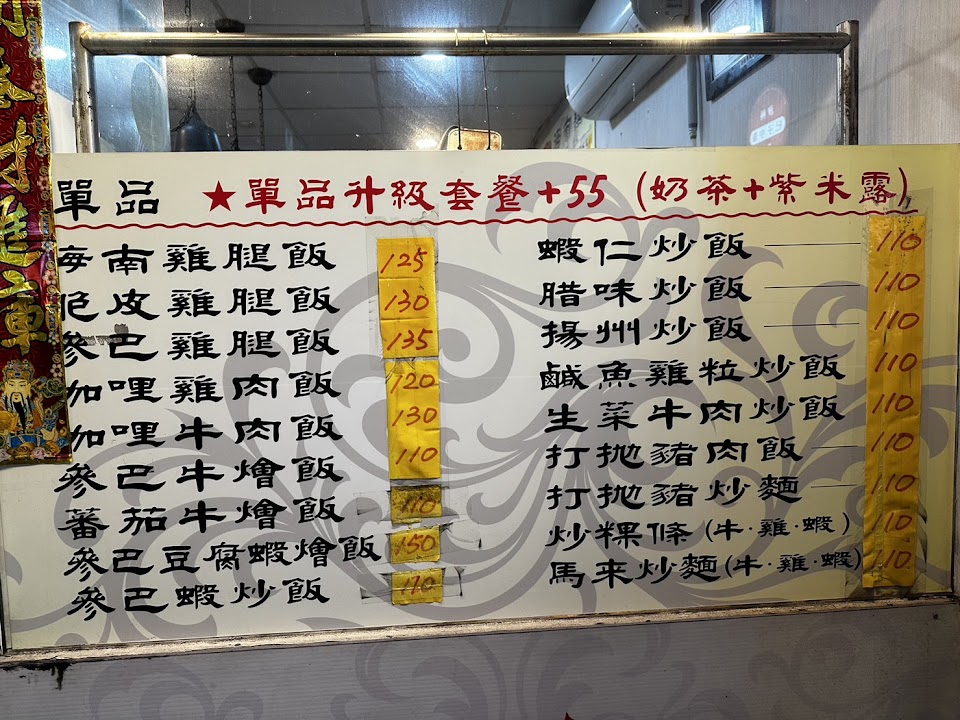 單品 ★單品升級套餐+55 (奶茶+紫米露)
海南雞腿飯 125
脆皮雞腿飯 130
參巴雞腿飯 135
加哩雞肉飯 120
加哩牛肉飯 130
參巴牛燴飯 110
蕃茄牛燴飯 110
參巴豆腐蝦燴飯 150
參巴蝦炒飯 110
蝦仁炒飯 110
腊味炒飯 110
揚州炒飯 110
鹹魚雞粒炒飯 110
生菜牛肉炒飯 110
打拋豬肉飯 110
打拋豬炒麵 110
炒粿條(牛·雞·蝦) 110
馬来炒麵(牛·雞·蝦) 110